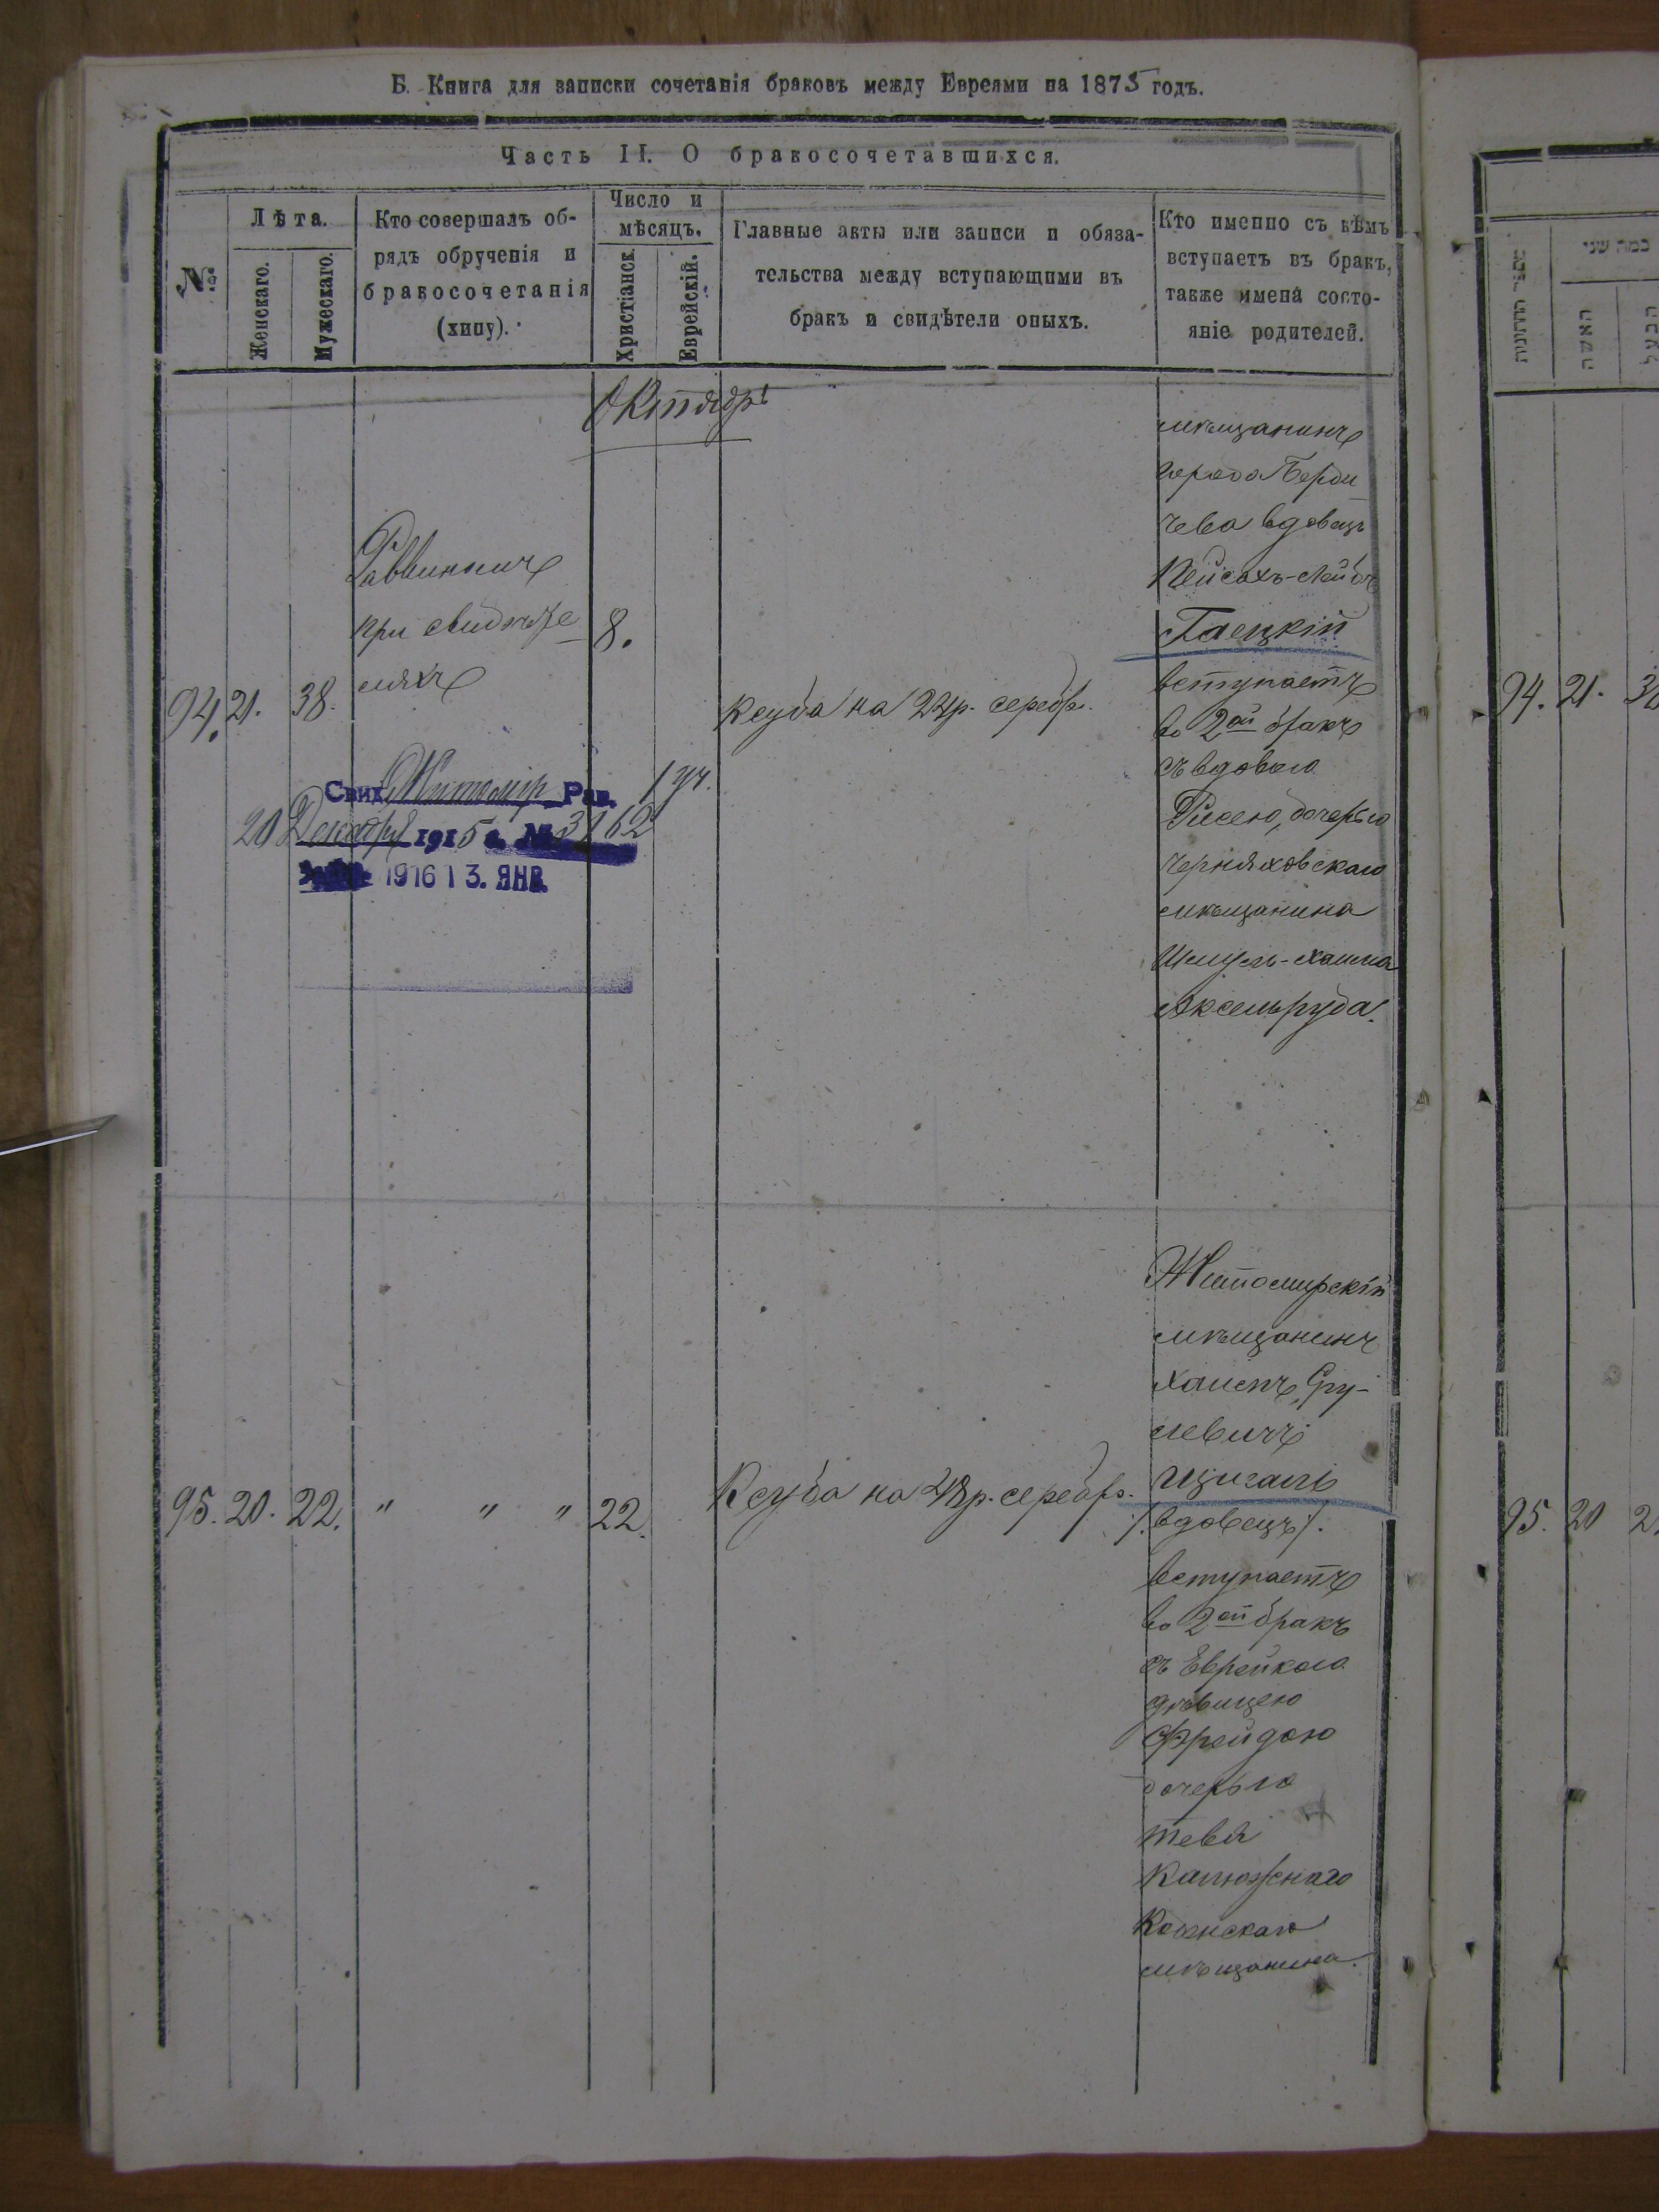 Б. Книга для записки сочетанія браковъ между Евреями на 1875 годъ.
Часть II. О бракосочетавшихся.
№
Лѣта.
Женскаго.
Мужескаго.
Кто совершалъ об-
рядъ обрученія и
бракосочетанія
(хипу).
Число и
мѣсяцъ.
Христіанск.
Еврейскій.
Главные акты или записи и обяза-
тельства между вступающими въ
бракъ и свидѣтели оныхъ.
Кто именно съ кѣмъ
вступаетъ въ бракъ,
также имена состо-
яніе родителей.
Октябрь
94. 21. 38.
Раввиномъ
при свидѣте
ляхъ
8.
Ксуба на 22 р. серебр.
мѣщанинъ
города Берди
чева вдовецъ
Пейсахъ-Лейбъ
Гаецкій
вступаетъ
во 2ой бракъ
съ вдовою
Рисею, дочерью
Черняховскаго
мѣщанина
Шмуль-Хаима
Аксельруда.
Свид. Житомір Рав.
20 Декабря 1915 г. № 3162
1916 13. ЯНВ.
95. 20. 22.
" " "
22.
Ксуба на 48 р. серебр.
Житомирскій
мѣщанинъ
Хаимъ, Сру-
левичъ
Цигаль
/.вдовецъ/.
вступаетъ
во 2ой бракъ
съ Еврейкою
дѣвицею
Фрейдою
дочерью
Тевія
Калюжнаго
мѣщанина.
מספר החתונות
כמה שני
האשה
הבעל
94. 21.
95. 20